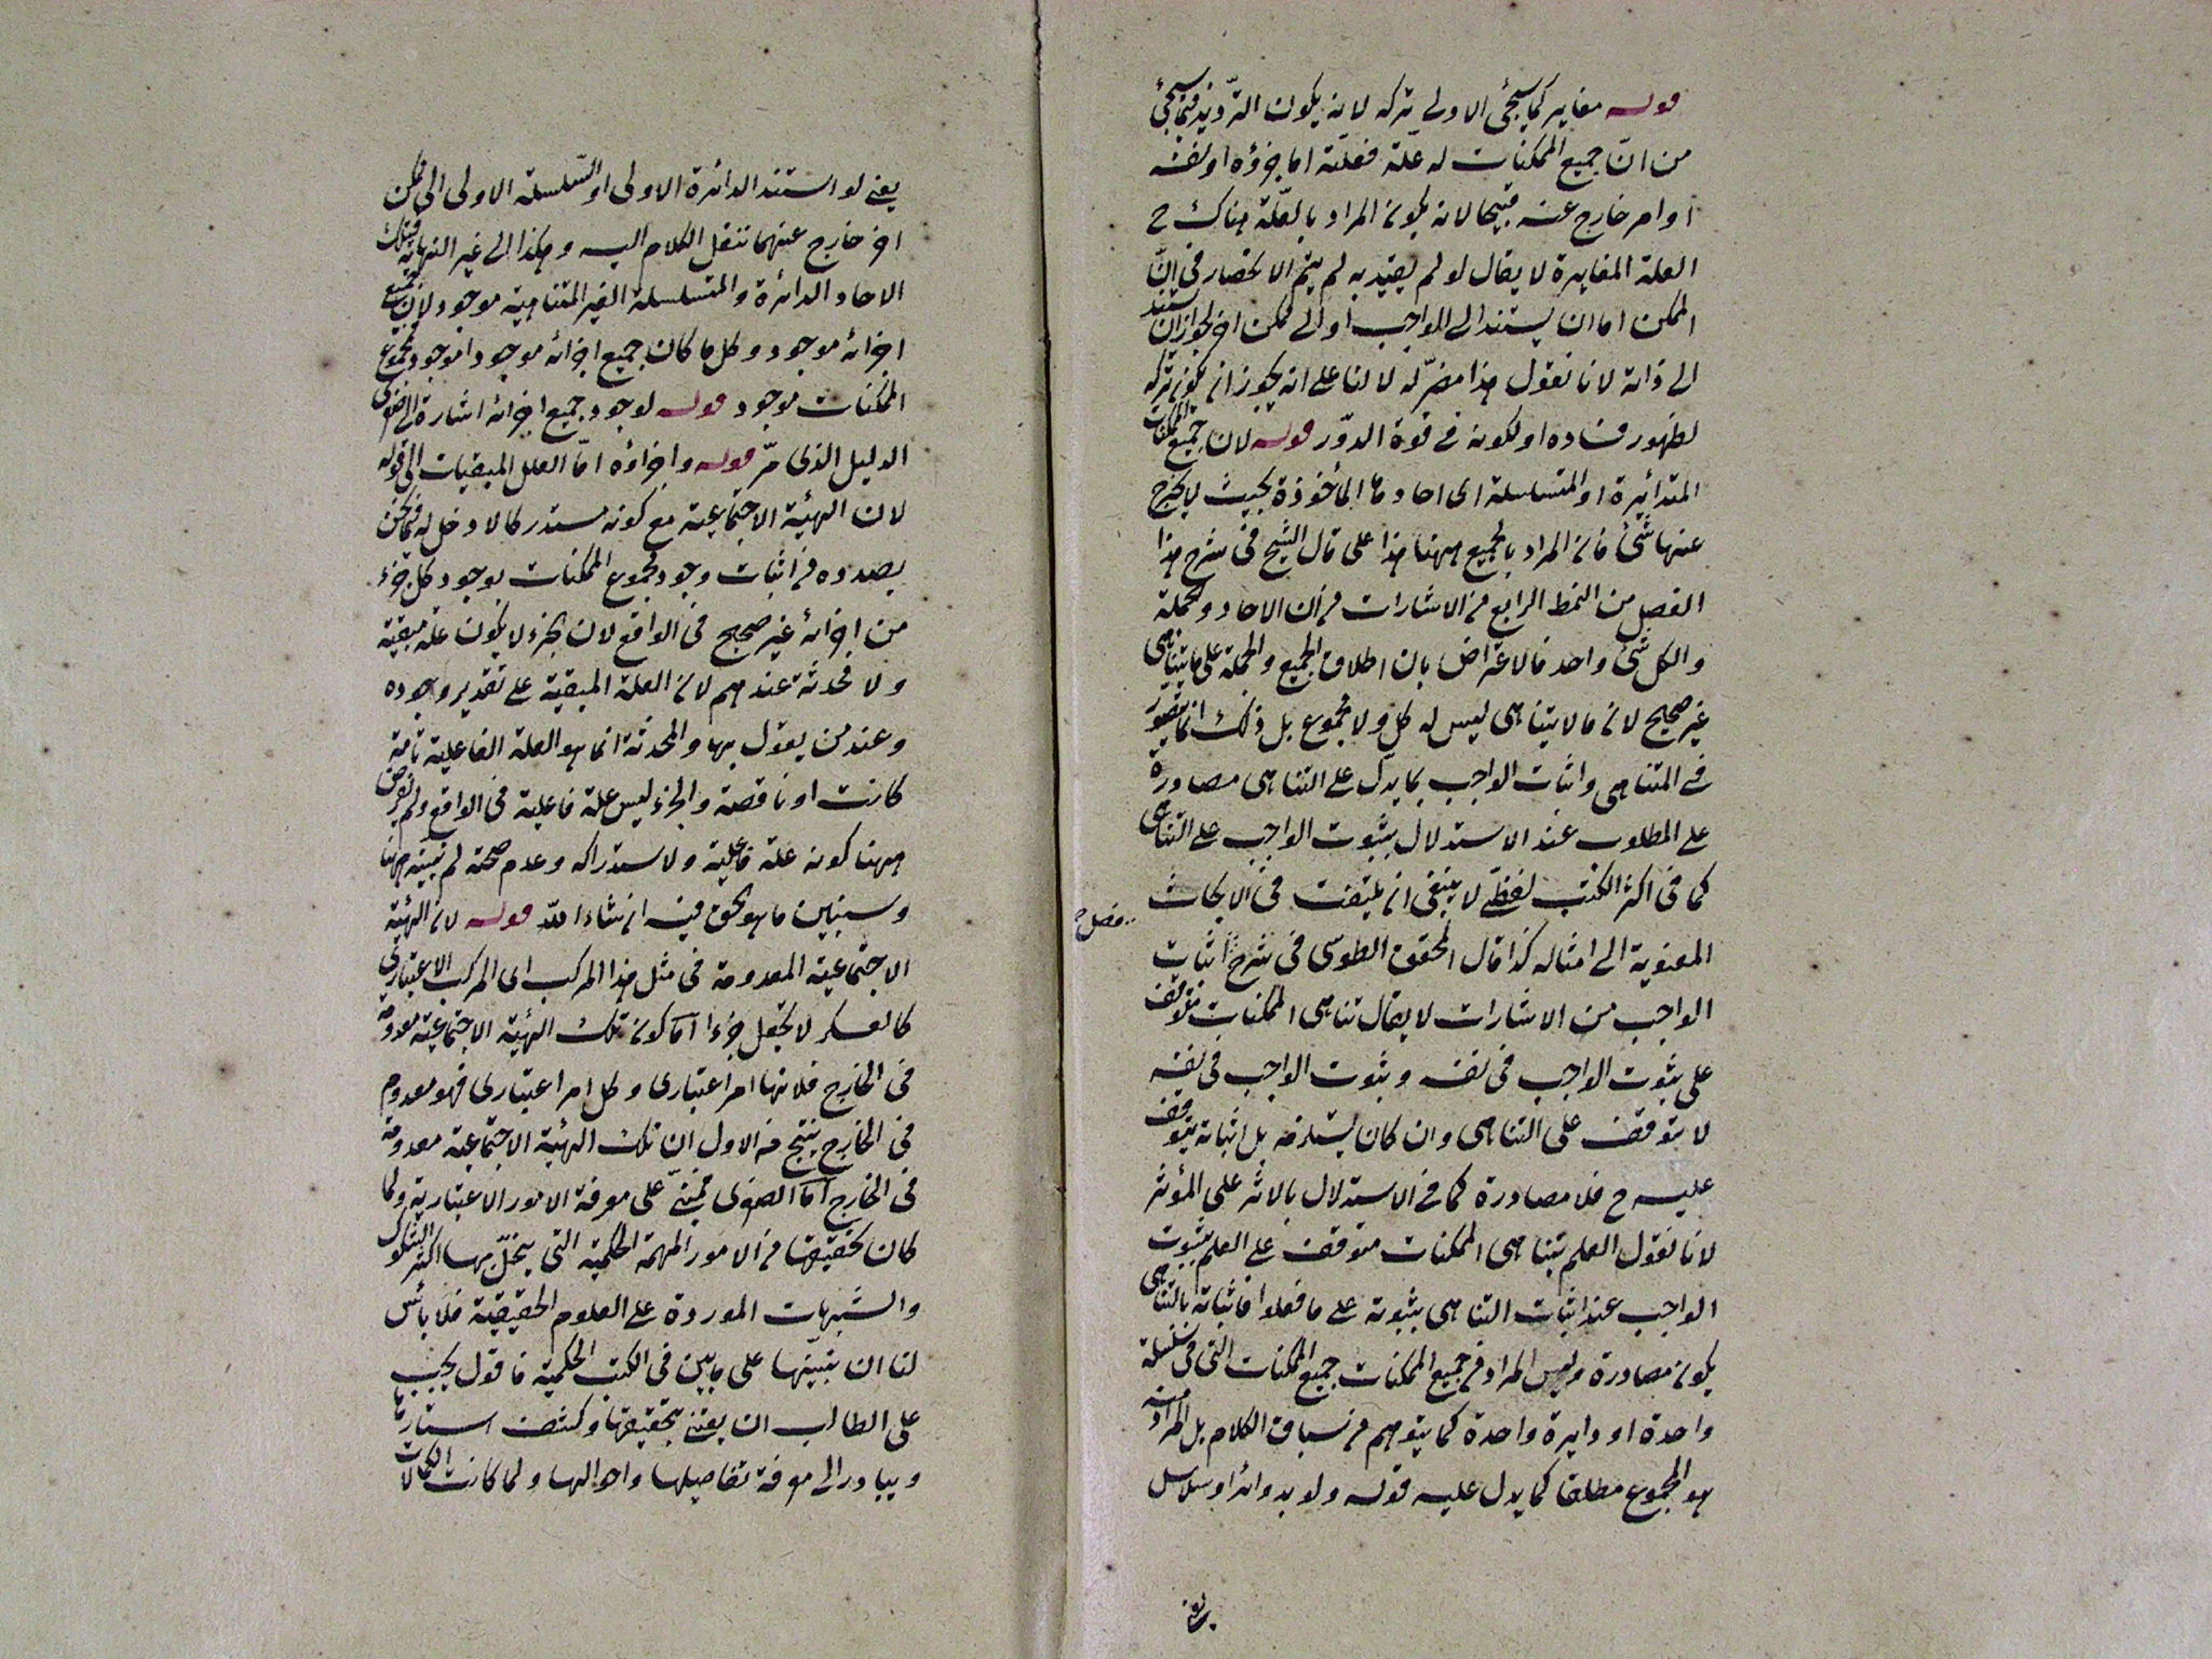 قوله مغاير كما سيجئ الاولى تركه لانه يكون الترديد فيما سيجئ
من انّ جميع الممكنات له علّة فعلّته اما جزؤه او نفسه
او امر خارج عنه قبيحا لانه يكون المراد بالعلّة هناك ح
العلة المغايرة لا يقال لو لم يقيد به لم يتم الانحصار في انّ
الممكن اما ان يستند الى الواجب او الى ممكن اخر لجواز ان يستند
الى ذاته لانا نقول هذا مضرّ له لا لنا على انه يجوز ان يكون تركه
لظهور فساده او لكونه في قوة الدّور قوله لان جميع الممكنات
المتدائرة او المتسلسلة اى احادها المأخوذة بحيث لا يخرج
عنها شئ فان المراد بالجميع ههنا هذا على قال الشيخ في شرح هذا
الفصل من النمط الرابع من الاشارات من ان الاحاد والجملة
والكل شئ واحد فالاعتراض بان اطلاق الجميع والجملة على ما يتناهى
غير صحيح لان ما لا يتناهى ليس له كل ولا مجموع بل ذلك انما يتصور
في المتناهى واثبات الواجب بما يدلّ على التناهى مصادرة
على المطلوب عند الاستدلال بثبوت الواجب على التناهى
كما في اكثر الكتب لفظىّ لا ينبغى ان يلتفت في الابحاث
المعنوية الى امثاله كذا قال المحقق الطوسى في شرح اثبات
الواجب من الاشارات لا يقال تناهى الممكنات متوقف
على ثبوت الواجب في نفسه وثبوت الواجب في نفسه
لا يتوقف على التناهى وان كان يستلزمه بل اثباته يتوقف
عليه ح فلا مصادرة كما في الاستدلال بالاثر على المؤثر
لانا نقول العلم بتناهى الممكنات متوقف على العلم بثبوت
الواجب عند اثبات التناهى بثبوته على ما فعلوا فاثباته بالتناهى
يكون مصادرة وليس المراد من جميع الممكنات جميع الممكنات التى في سلسلة
واحدة او دايرة واحدة كما يتوهم من سياق الكلام بل المراد منه
هو المجموع مطلقا كما يدل عليه قوله ولو بدوائر او سلاسل
يعنى
فصل
يعنى لو استند الدائرة الاولى او السّلسلة الاولى الى ممكن
اخر خارج عنهما ننقل الكلام اليه وهكذا الى غير النهاية فتلك
الاحاد الدائرة والمتسلسلة الغير المتناهية موجود لان جميع
اجزائه موجود وكل ما كان جميع اجزائه موجودا موجود فمجموع
الممكنات موجود قوله لوجود جميع اجزائه اشارة الى صغرى
الدليل الذى مرّ قوله واجزاؤه امّا العلل المبقيات الى قوله
لان الهيئة الاجتماعية مع كونه مستدركا لا دخل له فيما نحن
بصدده من اثبات وجود مجموع الممكنات بوجود كل جزء
من اجزائه غير صحيح في الواقع لان الجزء لا يكون علة مبقية
ولا محدثة عندهم لان العلة المبقية على تقدير وجوده
وعند من يقول بها والمحدثة انما هو العلة الفاعلية تامة
كانت او ناقصة والجزء ليس علة فاعلية في الواقع ولم يفرض
ههنا كونه علة فاعلية ولاستدراكه وعدم صحته لم نبينه ههنا
وسنبين ما هو الحق فيه ان شاء الله قوله لان الهيئة
الاجتماعية المعدومة في مثل هذا المركب اى المركب الاعتبارى
كالعسكر لا تجعل جزءا اما كون تلك الهيئة الاجتماعية معدومة
في الخارج فلانها امر اعتبارى وكل امر اعتبارى فهو معدوم
في الخارج ينتج من الاول ان تلك الهيئة الاجتماعية معدومة
في الخارج اما الصغرى فمبنىّ على معرفة الامور الاعتبارية ولما
كان تحقيقها من الامور المهمة الحكمية التى ينحلّ بها اكثر الشكوك
والشبهات الموردة على العلوم الحقيقية فلا بأس
لنا ان نبيّنها على ما بين في الكتب الحكمية فاقول يجب
على الطالب ان يعتنى بتحقيقها وكشف استارها
ويبادر الى معرفة تفاصيلها واحوالها ولما كانت الكمالات